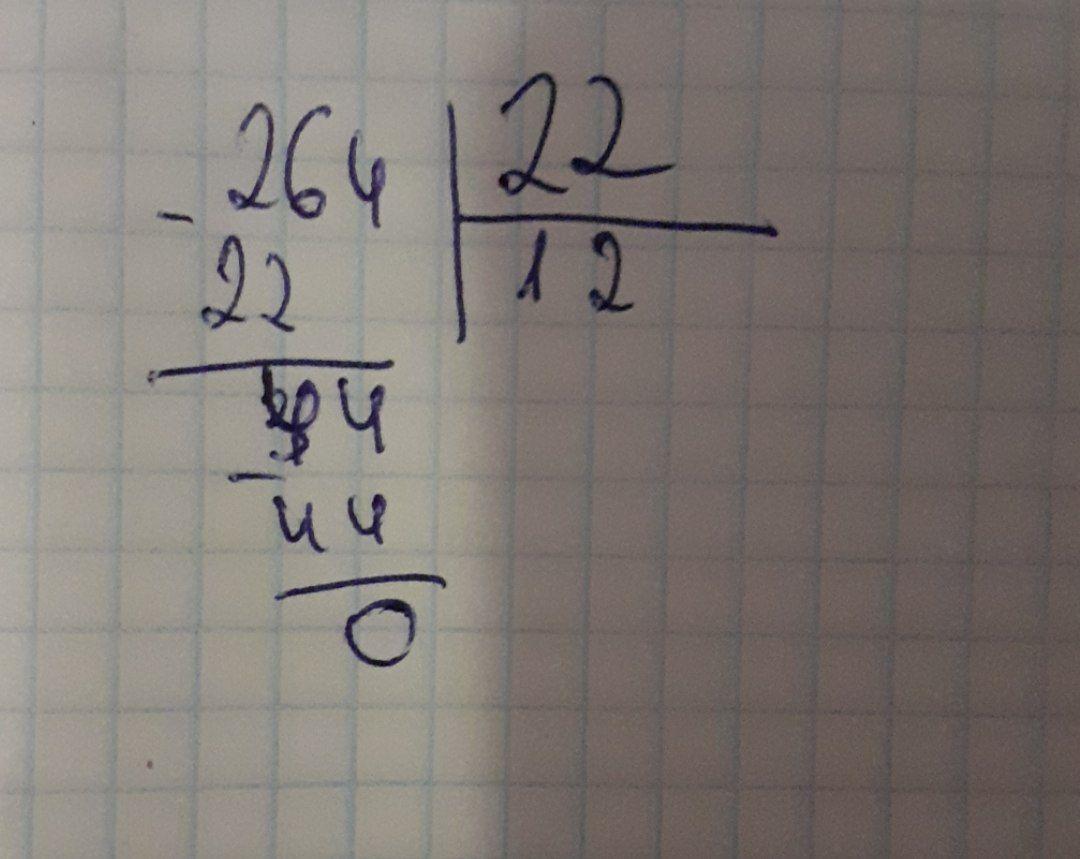 264 22
- 22 12
4
- 44
0